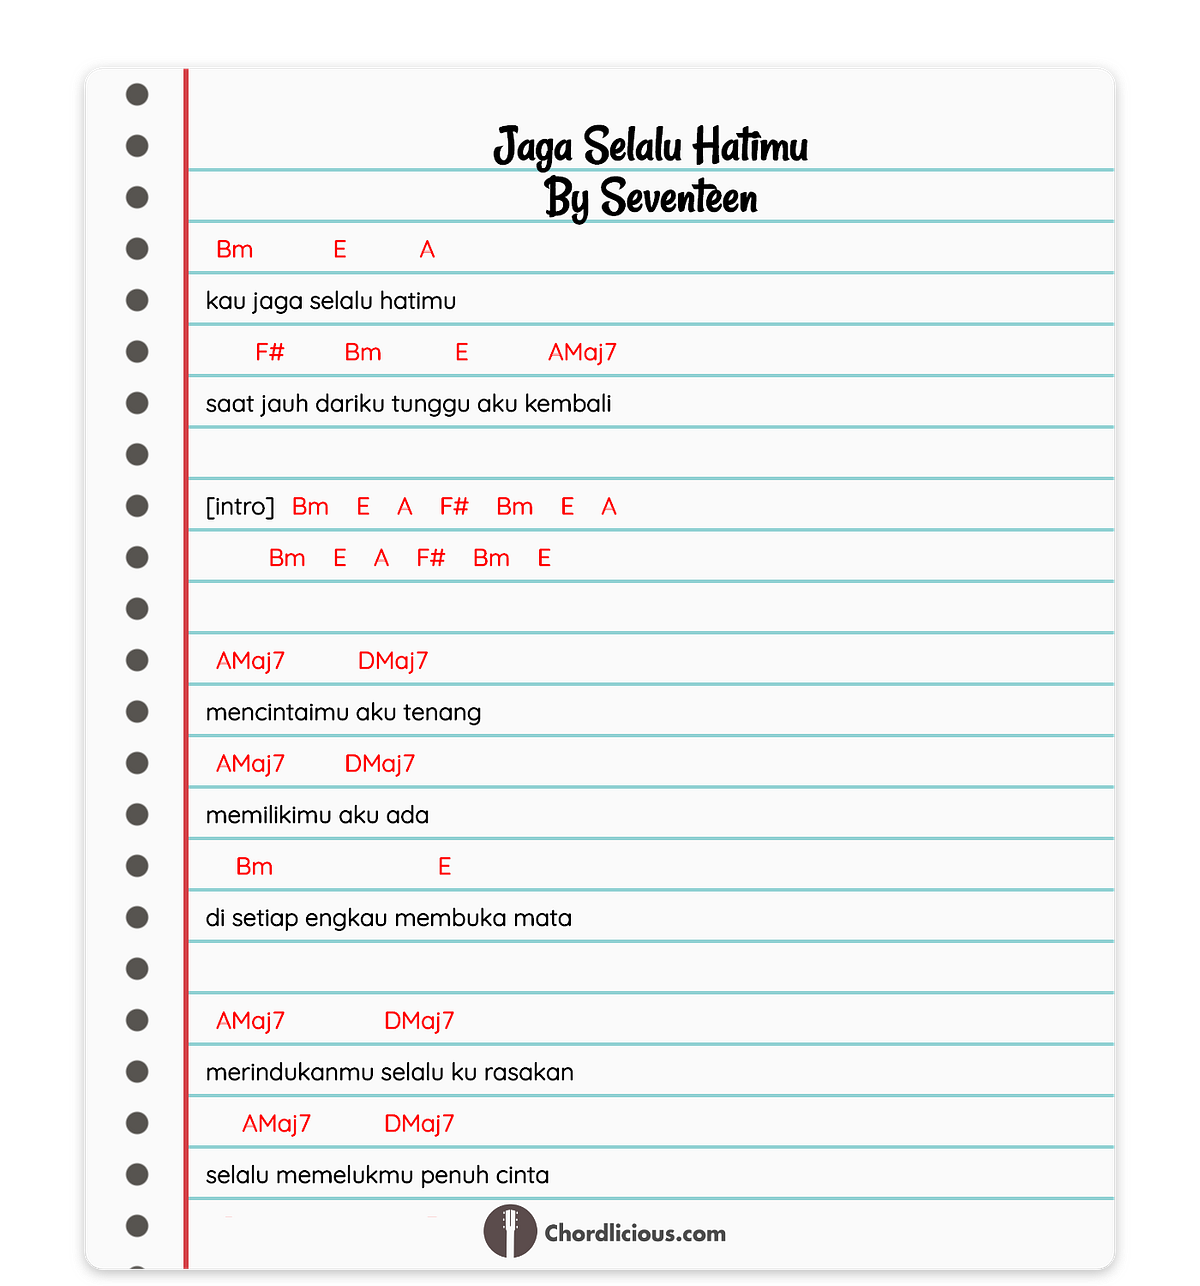 Jaga Selalu Hatimu
By Seventeen
Bm E A
kau jaga selalu hatimu
F# Bm E AMaj7
saat jauh dariku tunggu aku kembali
[intro] Bm E A F# Bm E A
Bm E A F# Bm E
AMaj7 DMaj7
mencintaimu aku tenang
AMaj7 DMaj7
memilikimu aku ada
Bm E
di setiap engkau membuka mata
AMaj7 DMaj7
merindukanmu selalu ku rasakan
AMaj7 DMaj7
selalu memelukmu penuh cinta
Chordlicious.com